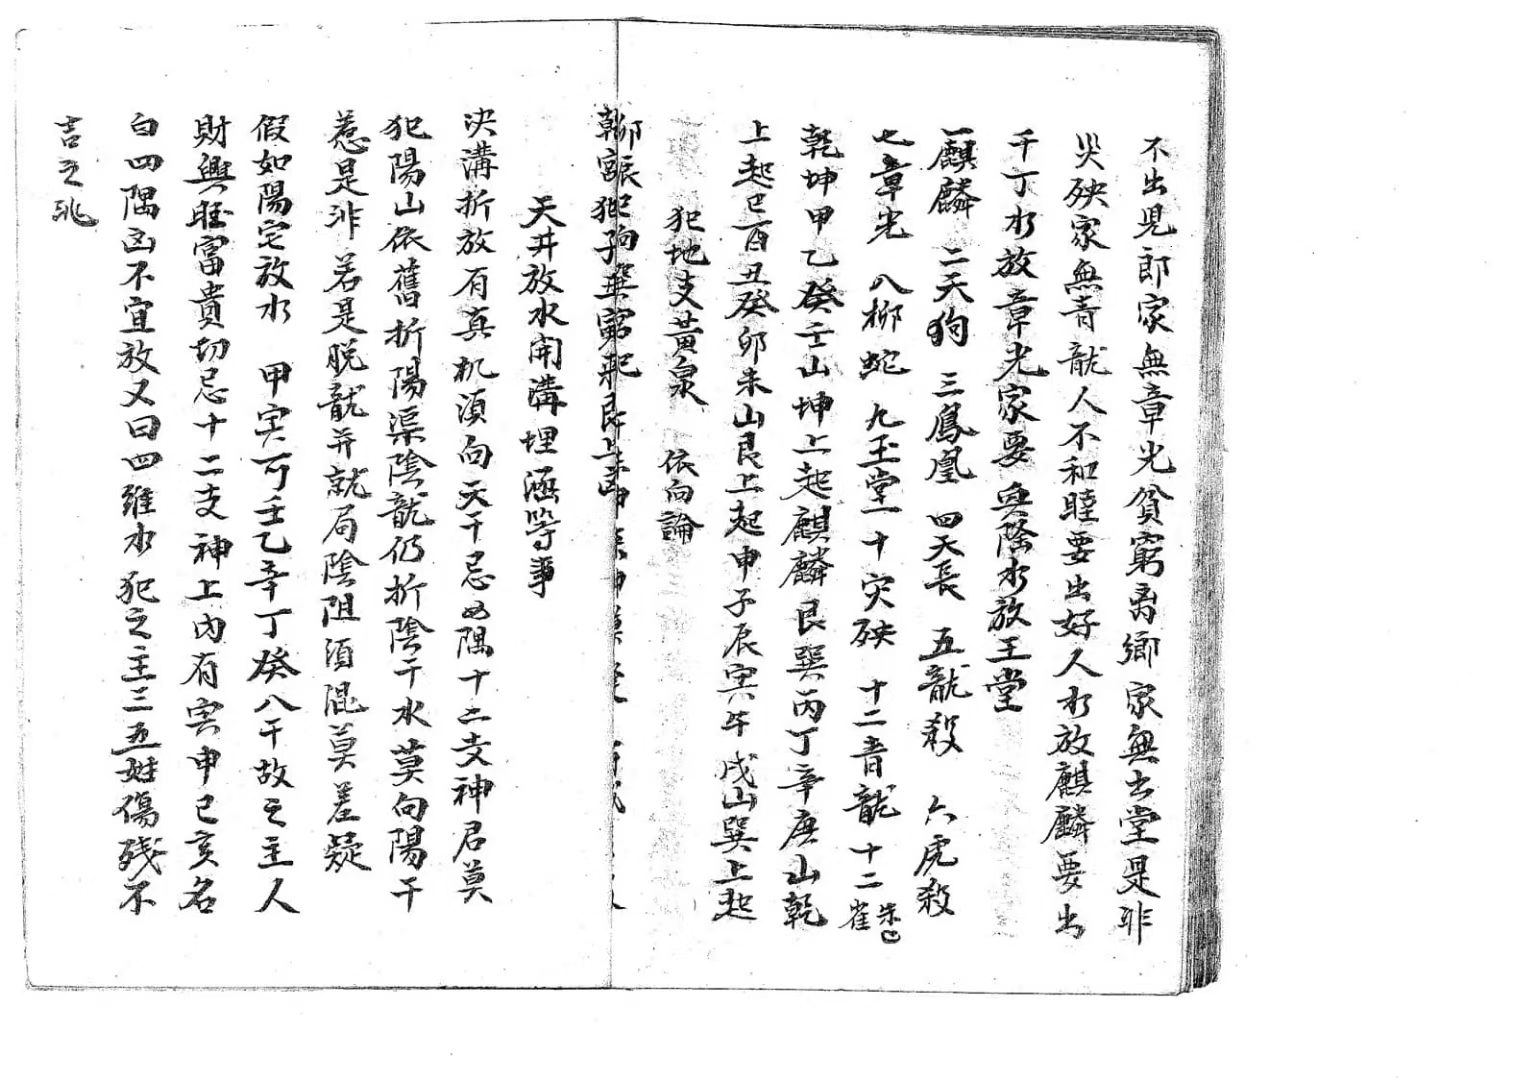 不出児郎家無章光貧窮离郷家無玉堂是非
災殃家無青龍人不和睦要出好人水放麒麟要出
千丁水放章光家要興隆水放玉堂
一麒麟 二天狗 三鳳凰 四天長 五龍殺 六虎殺
七章光 八柳蛇 九玉堂 十灾殃 十二青龍 十二朱雀
乾坤甲乙癸壬山坤上起麒麟艮巽丙丁辛庚山乾
上起巳酉丑癸卯未山艮上起申子辰寅午戌山巽上起
犯地支黃泉 依向論
天井放水開溝埋涵等事
决溝折放有真机須向天干忌四隅十二支神君莫
犯陽山依舊折陽渠陰龍仍折陰干水莫向陽干
惹是非若是脱龍并就局陰陽須混莫差疑
假如陽宅放水 甲寅可壬乙辛丁癸八干故之主人
財興旺富貴切忌十二支神上內有寅申巳亥名
白四隅凶不宜放又曰四維水犯之主三五姓傷残不
吉之兆